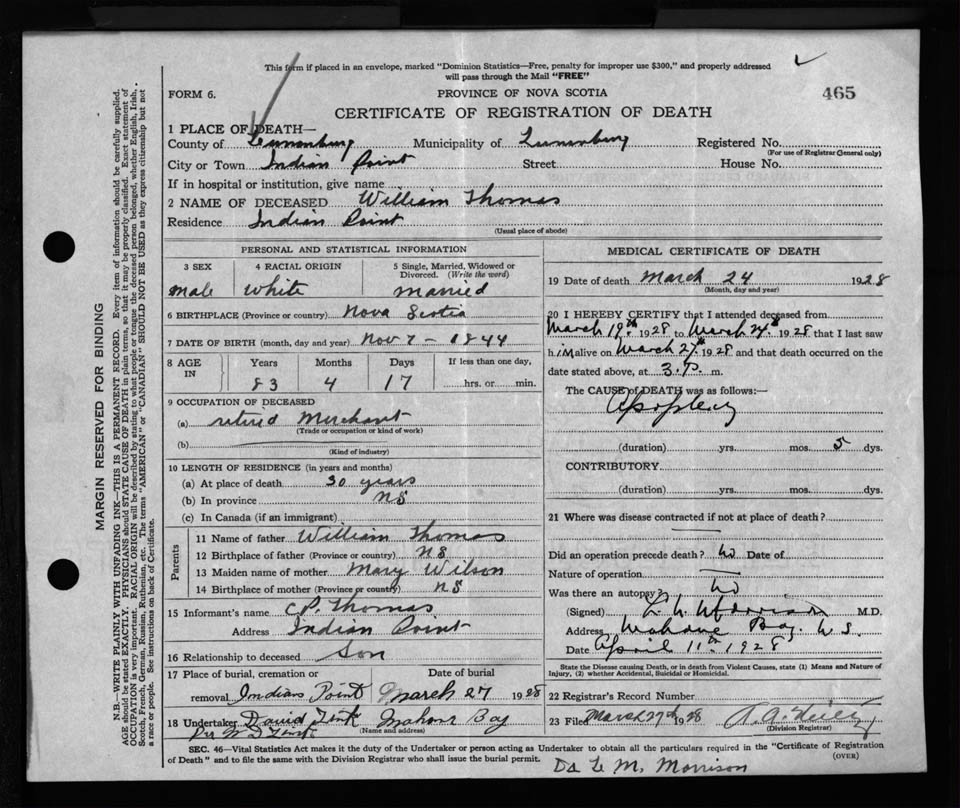 This form if placed in an envelope, marked "Dominion Statistics—Free, penalty for improper use $300," and properly addressed
will pass through the Mail "FREE"
FORM 6. PROVINCE OF NOVA SCOTIA 465
CERTIFICATE OF REGISTRATION OF DEATH
1 PLACE OF DEATH—
County of Lunenburg Municipality of Lunenburg Registered No.
(For use of Registrar General only)
City or Town Indian Point Street House No.
If in hospital or institution, give name
2 NAME OF DECEASED William Thomas
Residence Indian Point
(Usual place of abode)
PERSONAL AND STATISTICAL INFORMATION
3 SEX 4 RACIAL ORIGIN 5 Single, Married, Widowed or
Divorced. (Write the word)
male white married
6 BIRTHPLACE (Province or country) Nova Scotia
7 DATE OF BIRTH (month, day and year) Nov 7 - 1844
8 AGE IN Years Months Days If less than one day,
83 4 17 hrs. or min.
9 OCCUPATION OF DECEASED
(a) retired Merchant
(Trade or occupation or kind of work)
(b)
(Kind of industry)
10 LENGTH OF RESIDENCE (in years and months)
(a) At place of death 30 years
(b) In province NS
(c) In Canada (if an immigrant)
Parents
11 Name of father William Thomas
12 Birthplace of father (Province or country) NS
13 Maiden name of mother Mary Wilson
14 Birthplace of mother (Province or country) NS
15 Informant's name C P. Thomas
Address Indian Point
16 Relationship to deceased Son
17 Place of burial, cremation or Date of burial
removal Indian Point March 27 1928
18 Undertaker David Zink Mahone Bay
(Name and address)
Per Zink
MEDICAL CERTIFICATE OF DEATH
19 Date of death March 24 1928
(Month, day and year)
20 I HEREBY CERTIFY that I attended deceased from
March 19th 1928 to March 24th 1928 that I last saw
h im alive on March 1928 and that death occurred on
date stated above, at 3 P. m.
The CAUSE of DEATH was as follows:—
Apoplexy
(duration) yrs. mos. 5 dys.
CONTRIBUTORY
(duration) yrs. mos. dys.
21 Where was disease contracted if not at place of death?
Did an operation precede death? no Date of
Nature of operation
Was there an autopsy? no
(Signed) L. M. Morrison M.D.
Address Mahone Bay. N.S.
Date April 11th 1928
State the Disease causing Death, or in death from Violent Causes, state (1) Means and Nature of
Injury, (2) whether Accidental, Suicidal or Homicidal.
22 Registrar's Record Number
23 Filed March 27th 1928
(Division Registrar)
SEC. 46—Vital Statistics Act makes it the duty of the Undertaker or person acting as Undertaker to obtain all the particulars required in the "Certificate of Registration
of Death" and to file the same with the Division Registrar who shall issue the burial permit. (OVER)
Dr L. M. Morrison
MARGIN RESERVED FOR BINDING
N.B.—WRITE PLAINLY WITH UNFADING INK—THIS IS A PERMANENT RECORD. Every item of information should be carefully supplied.
AGE should be stated EXACTLY. PHYSICIANS should STATE CAUSE OF DEATH in plain terms, so that it may be properly classified. Exact statement of
OCCUPATION is very important. RACIAL ORIGIN will be described by stating to what people or tongue the deceased person belonged, whether English, Irish,
Scotch, French, German, Russian, Ruthenian, etc. The terms "AMERICAN" or "CANADIAN" SHOULD NOT BE USED as they express citizenship but not
a race or people. See instructions on back of Certificate.